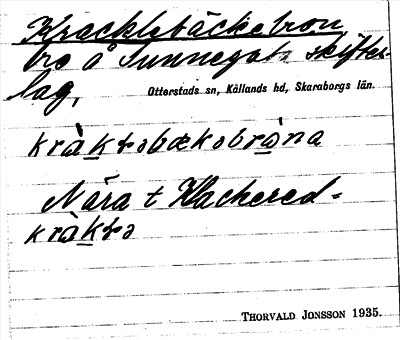 Kracklebäckebron
bro å Sunnegåts skifteslag,
Otterstads sn, Kållands hd, Skaraborgs län.
kràktəbækəbro̱na
Nära t Klackered=
kràktə
THORVALD JONSSON 1935.